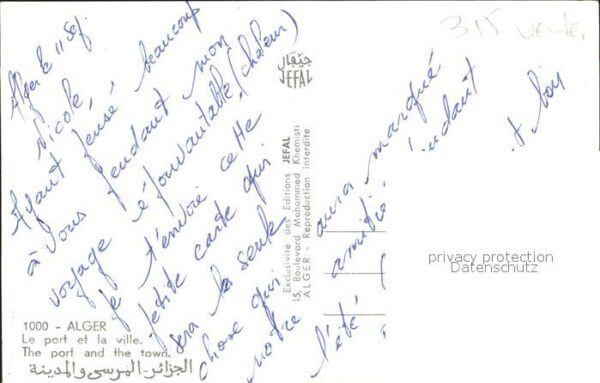 315 vente
Alger le 11 Sep.
Nicole,
Ayant pensé, beaucoup
à vous pendant mon
voyage épouvantable, (chaleur)
je t'envoie cette
petite carte qui
sera la seule
chose qui aura marqué
notre amitié pendant
l'été
جيفال
JEFAL
Exclusivité des Editions JEFAL
15, Boulevard Mohammed Khemisti
ALGER - Reproduction interdite
1000 - ALGER
Le port et la ville.
The port and the town.
الجزائر-المرسى والمدينة
privacy protection
Datenschutz